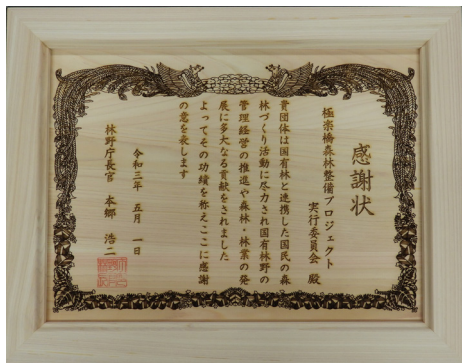 感謝状
極楽橋森林整備プロジェクト
実行委員会 殿
貴団体は国有林と連携した国民の森
林づくり活動に尽力され国有林野の
管理経営の推進や森林・林業の発
展に多大なる貢献をされました
よってその功績を称えここに感謝
の意を表します
令和三年 五月 一日
林野庁長官 本郷 浩二